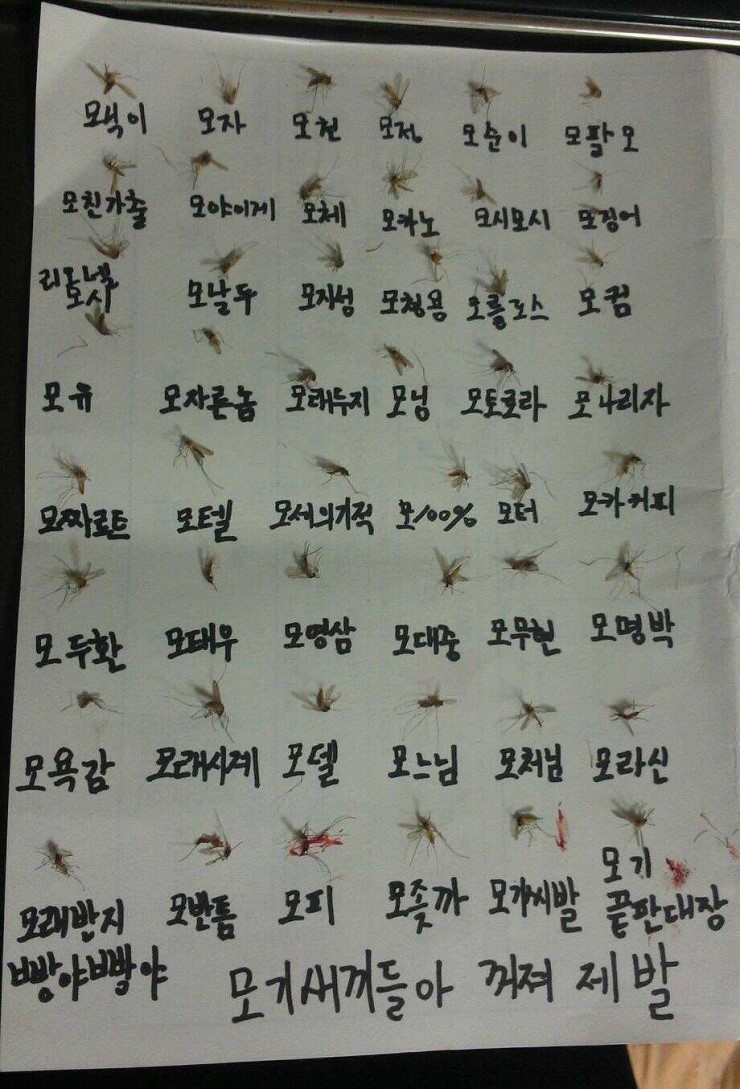 모벅이 모자 모친 모정 모순이 모팔모
모친가출 모야이게 모체 모카노 모시모시 모징어
리오넬 모시 모날두 모지성 모청용 모를포스 모컴
모유 모자른놈 모래두지 모닝 모토로라 모나리자
모짜르트 모텔 모세의기적 모100% 모터 모카커피
모두환 모태우 모영삼 모대중 모무현 모명박
모욕감 모래시계 모델 모느님 모처님 모라신
모래반지 빵야빵야 모반틈 모피 모좆까 모가씨발 모기 끝판대장
모기새끼들아 꺼져 제발